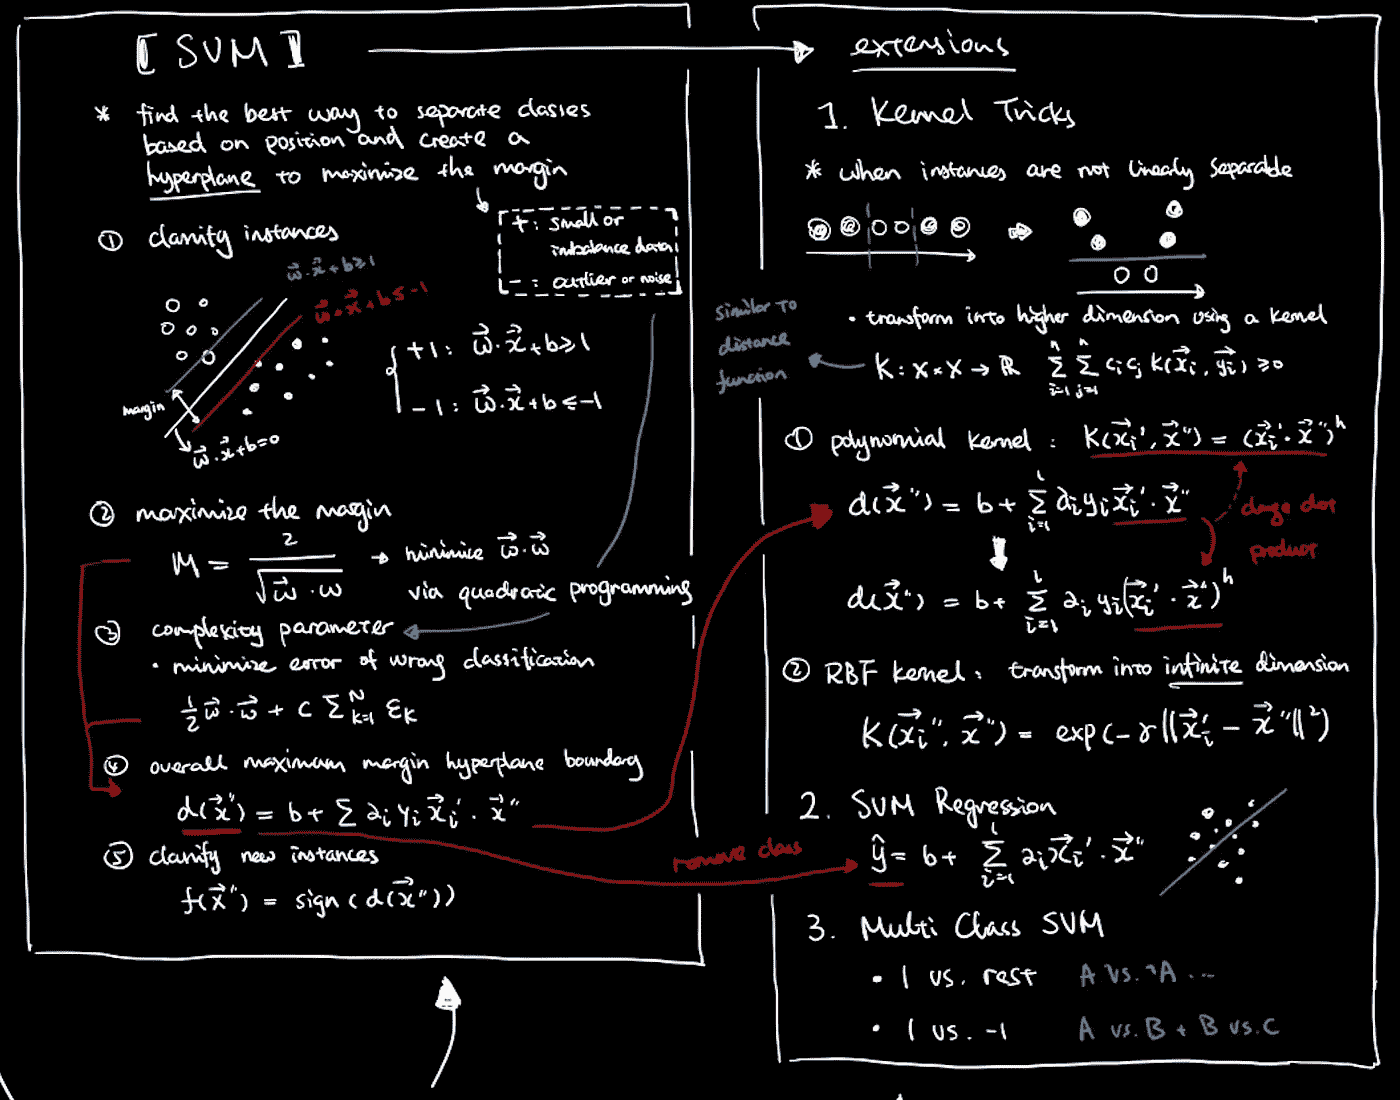 [ SVM ]
* find the best way to separate classes
based on position and create a
hyperplane to maximize the margin
+ : small or
imbalance data
- : outlier or noise
① clarify instances
w⃗·x⃗+b≥1
w⃗·x⃗+b≤-1
margin
w⃗·x⃗+b=0
+1 : w⃗·x⃗+b≥1
-1 : w⃗·x⃗+b≤-1
② maximize the margin
M = 2 / √(w⃗·w) → minimize w⃗·w⃗
via quadratic programming
③ complexity parameter
· minimize error of wrong classification
½ w⃗·w⃗ + C Σ_{k=1}^{N} ε_k
④ overall maximum margin hyperplane boundary
d(x⃗") = b + Σ a_i y_i x⃗_i' · x⃗"
⑤ clarify new instances
f(x⃗") = sign(d(x⃗"))
extensions
1. Kernel Tricks
* when instances are not linearly separable
· transform into higher dimension using a kernel
similar to
distance
function
K : X × X → ℝ Σ_{i=1}^{n} Σ_{j=1}^{n} c_i c_j K(x⃗_i, y⃗_i) ≥ 0
① polynomial kernel : K(x⃗_i', x⃗") = (x⃗_i' · x⃗")^h
d(x⃗") = b + Σ_{i=1}^{l} a_i y_i x⃗_i' · x⃗"
dot
product
d(x⃗") = b + Σ_{i=1}^{l} a_i y_i (x⃗_i' · x⃗')^h
② RBF kernel : transform into infinite dimension
K(x⃗_i", x⃗") = exp(-γ||x⃗_i' - x⃗"||²)
2. SVM Regression
remove class
ŷ = b + Σ_{i=1}^{l} a_i x⃗_i' · x⃗"
3. Multi Class SVM
· 1 vs. rest A vs. ¬A ...
· 1 vs. -1 A vs. B + B vs. C